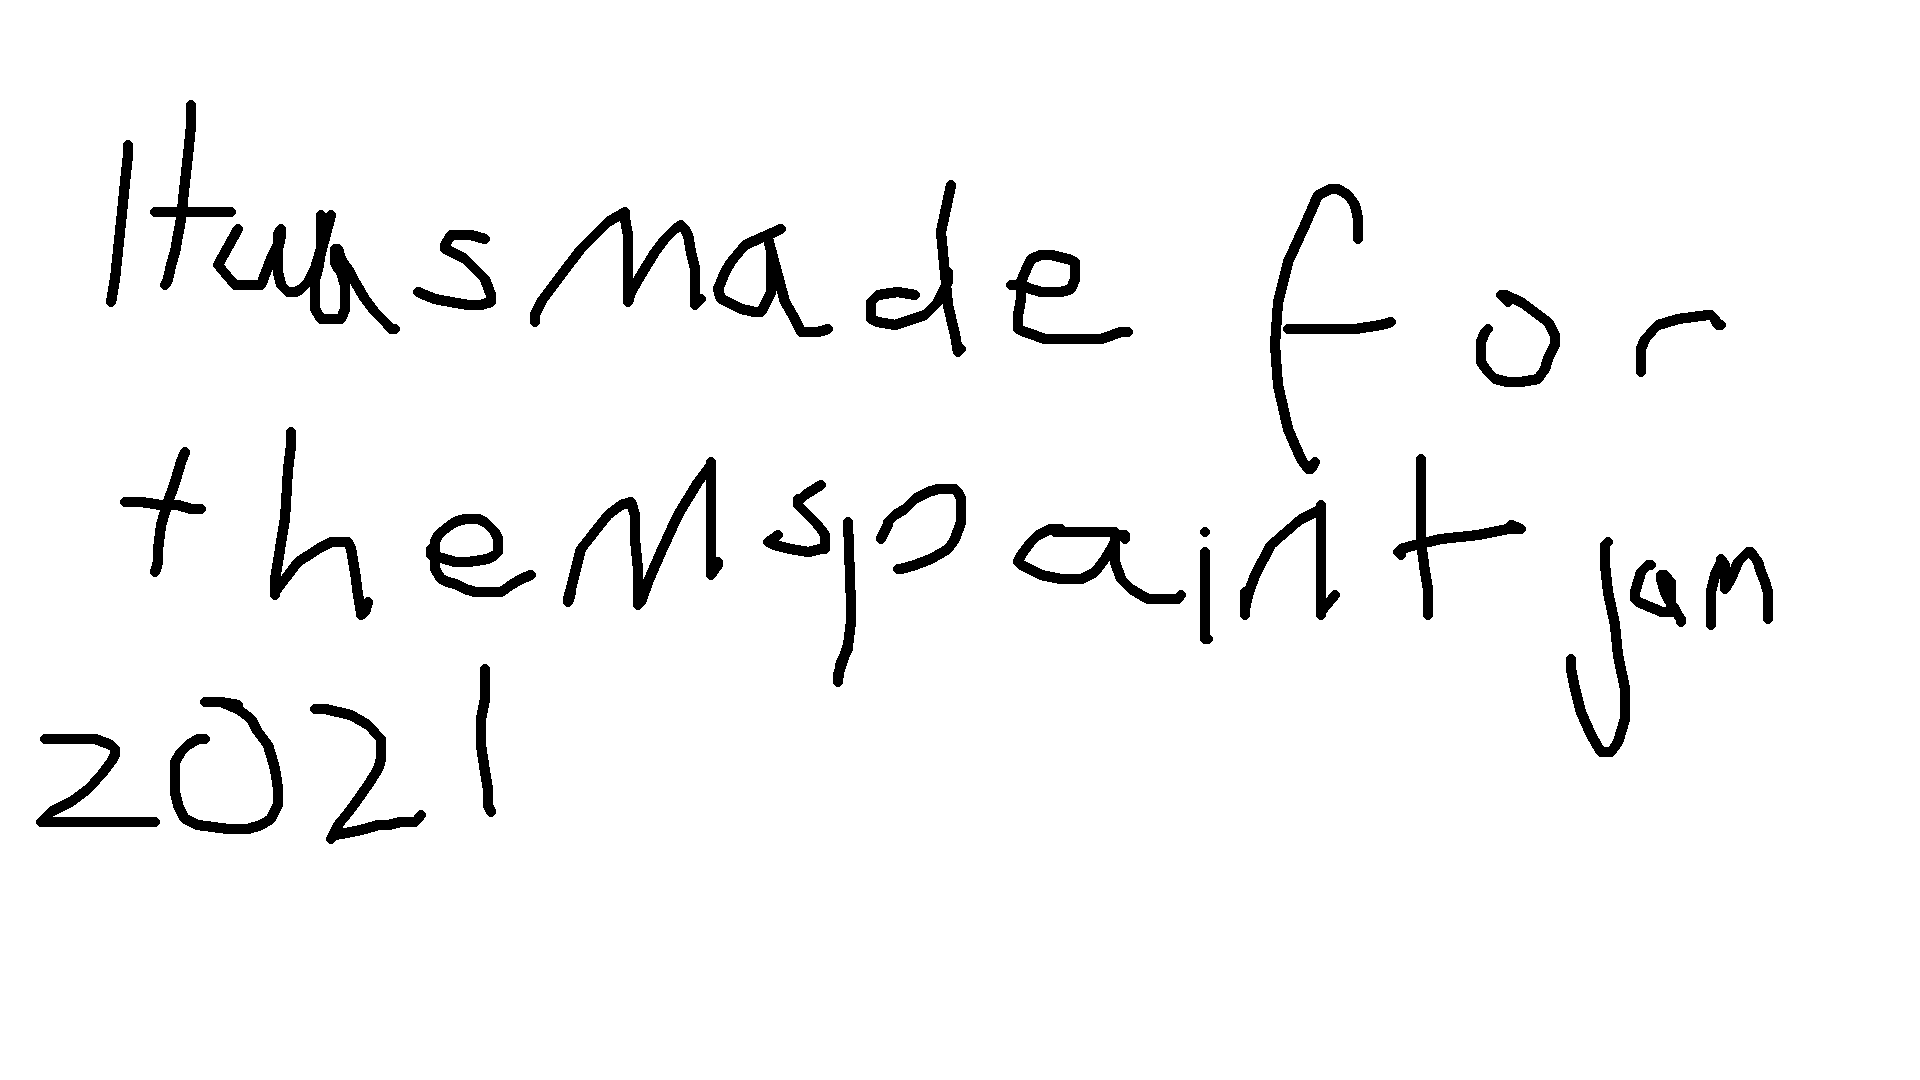 It was made for
the mspaint jam
2021